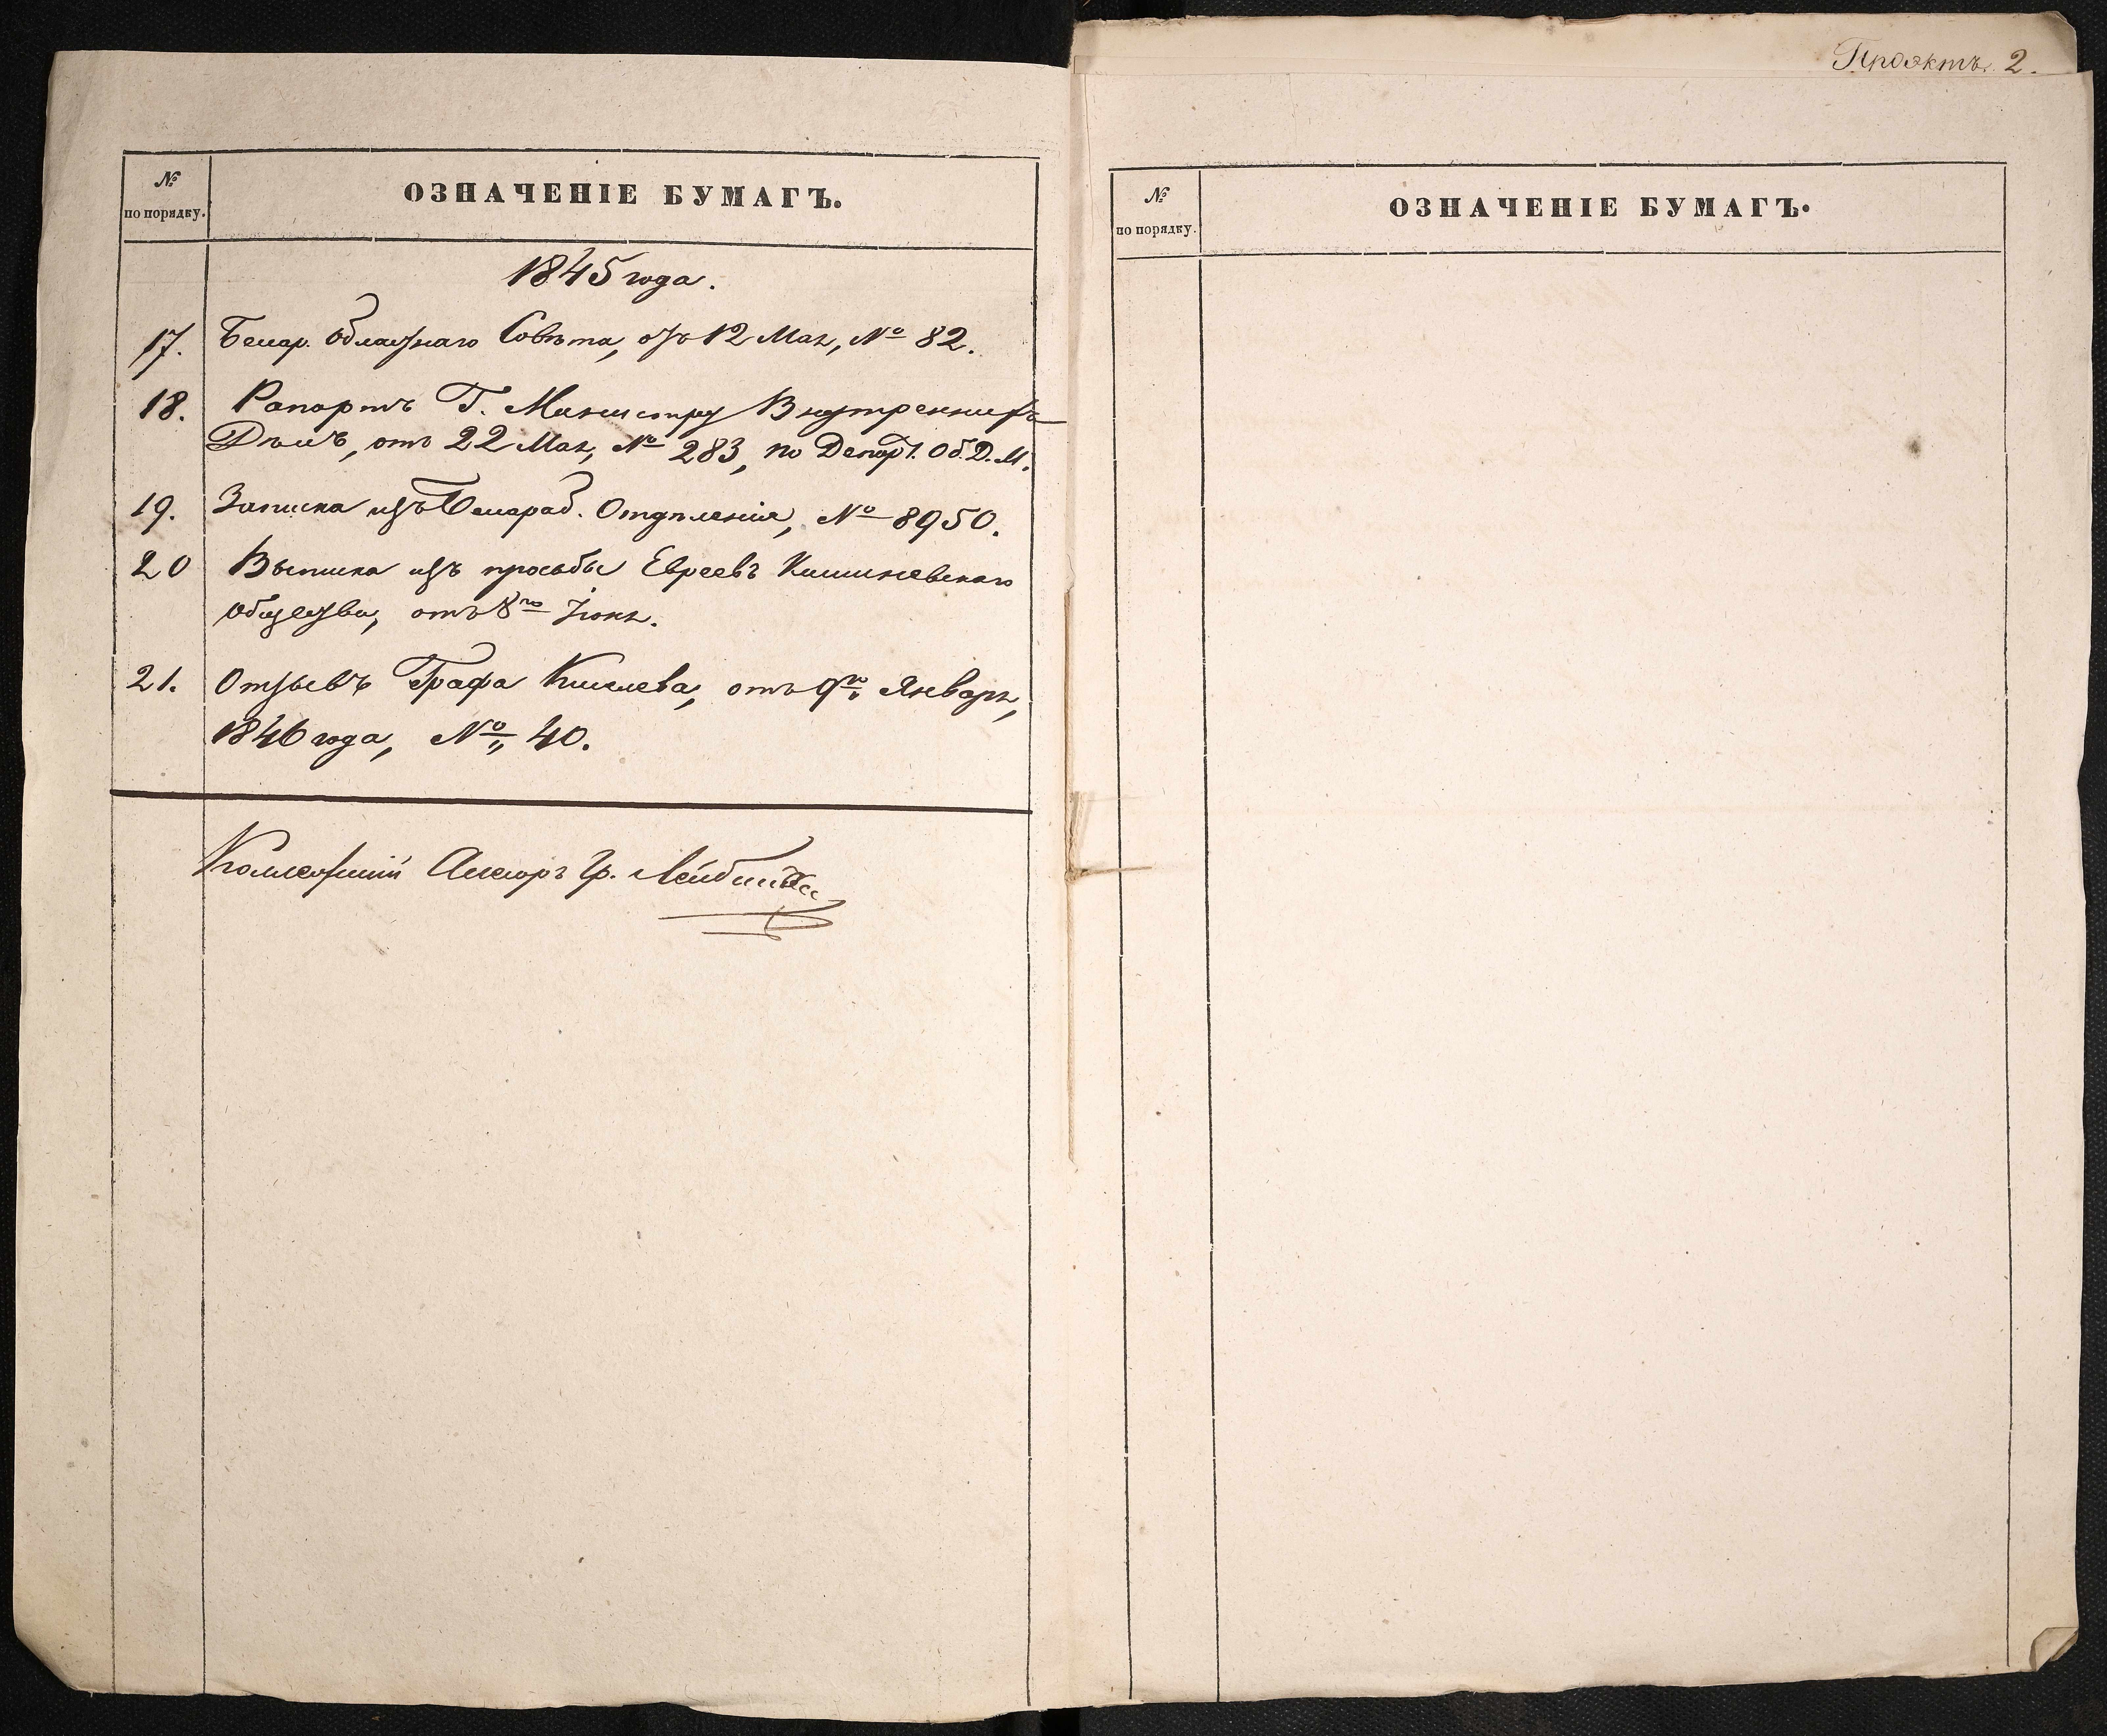 № по порядку.
ОЗНАЧЕНІЕ БУМАГЪ.
1845 года.
17. Бесар. Областнаго Совѣта, отъ 12 Мая, № 82.
18. Рапортъ Г. Министру Внутреннихъ
Дѣлъ, отъ 22 Мая, № 283, по Департ. Об. Д. М.
19. Записка изъ Бесараб. Отдѣленія, № 8950.
20 Выписка изъ просьбы Евреевъ Кишиневскаго
общества, отъ 8го Іюня.
21. Отзывъ Графа Киселева, отъ 9го Января,
1846 года, № 40.
Коллежскій Асесоръ Гр.
Проэктъ. 2.
№ по порядку.
ОЗНАЧЕНІЕ БУМАГЪ.